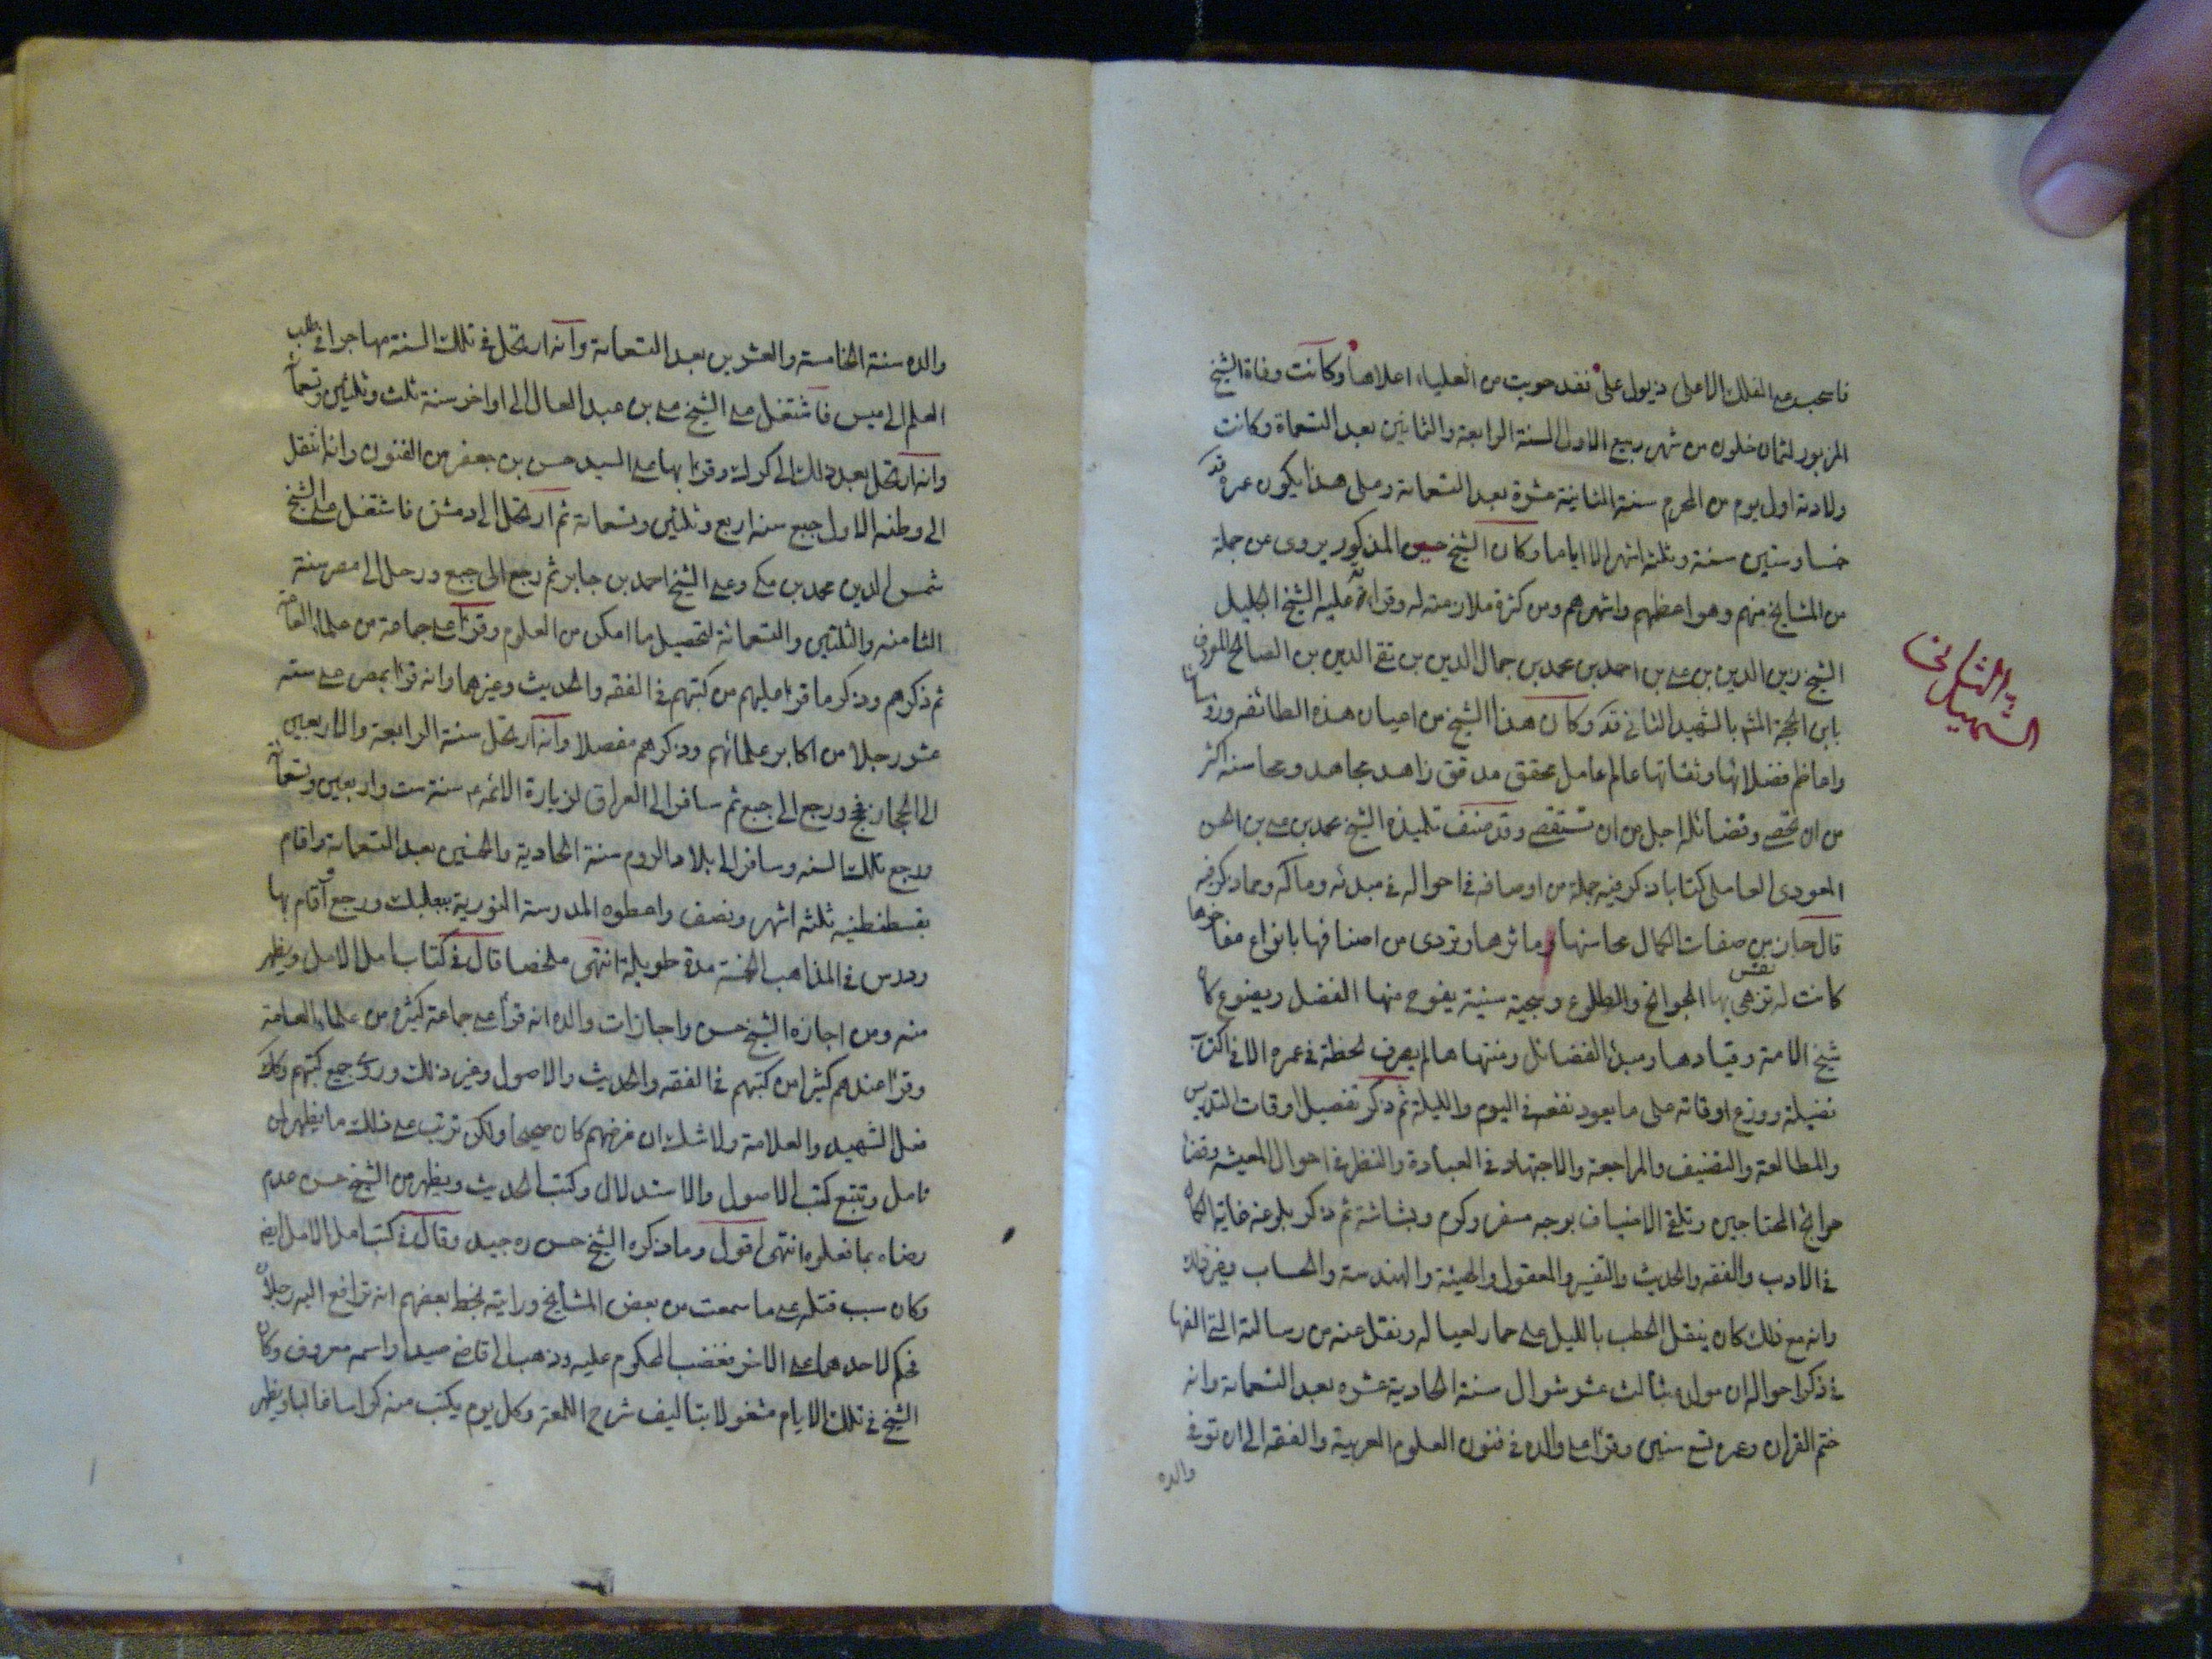 فاسحب على الفلك الاعلى ذيول على فقد حويت من العلياء اعلاها وكانت وفاة الشيخ
المزبور لثمان خلون من شهر ربيع الاول السنة الرابعة والثمانين بعد التسعماة وكانت
ولادته اول يوم من المحرم سنة الثانية عشرة بعد التسعمائة وعلى هذا يكون عمره قده
خمسا وستين سنة وثلثه اشهر الا اياما وكان الشيخ حسين المذكور يروى عن جملة
من المشايخ منهم وهو اعظمهم واشهرهم ومن كثرة ملازمته له وقرائته عليه الشيخ الجليل
الشيخ زين الدين بن على بن احمد بن محمد بن جمال الدين بن تقى الدين بن الصالح المعروف
الشهيد الثانى
بابن الحجة المشهر بالشهيد الثانى قده وكان هذا الشيخ من اعيان هذه الطائفه ورؤسائها
واعاظم فضلائها وثقاتها عالم عامل محقق مدقق زاهد مجاهد ومحاسنه اكثر
من ان تحصى وفضائله اجل من ان تستقصى وقد صنف تلميذه الشيخ محمد بن على بن الحسن
العودى العاملى كتابا ذكر فيه جملة من اوصافه فى احواله فى مبدئه ومآله ومما ذكر فيه
قال حاز من صفات الكمال محاسنها ومآثرها وتردى من اصنافها بانواع مفاخرها
كانت له نفس تزهى بها الجوانح والضلوع وسجية سنية يفوح منها الفضل ويضوع كان
شيخ الامة وقيادها ومبدأ الفضائل ومنتهاها لم يصرف لحظة فى عمره الا فى اكتساب
فضيلة ووزع اوقاته على ما يعود نفعه فى اليوم والليلة ثم ذكر تفصيل اوقات التدريس
والمطالعة والتصنيف والمراجعة والاجتهاد فى العبادة والنظر فى احوال المعيشه وقضاء
حوائج المحتاجين وتلقى الاضياف بوجه مسفر وكرم وبشاشة ثم ذكر بلوغه غاية الكمال
فى الادب والفقه والحديث والتفسير والمعقول والهيئة والهندسة والحساب وغير ذلك
وانه مع ذلك كان ينقل الحطب بالليل على حمار لعياله ونقل عنه من رسالته التى الفها
فى ذكر احواله ان مولده ثالث عشر شوال سنة الحادية عشره بعد التسعمائة وانه
ختم القران وعمره تسع سنين وقرأ على والده فى فنون العلوم العربية والفقه الى ان توفى
والده
والده سنة الخامسة والعشرين بعد التسعمائة وانه ارتحل فى تلك السنة مهاجرا فى طلب
العلم الى ميس فاشتغل على الشيخ على بن عبد العال الى اواخر سنة ثلث وثلثين وتسعمائة
وانه ارتحل بعد ذلك الى كرك وقرأ بها على السيد حسن بن جعفر من الفنون وانه انتقل
الى وطنه الاول جبع سنه اربع وثلثين وتسعمائة ثم ارتحل الى دمشق فاشتغل على الشيخ
شمس الدين محمد بن مكى وعلى الشيخ احمد بن جابر ثم رجع الى جبع ورحل الى مصر سنة
الثامنه والثلثين والتسعمائة لتحصيل ما امكن من العلوم وقرأ على جماعة من علماء العامة
ثم ذكرهم وذكر ما قرأ عليهم من كتبهم فى الفقه والحديث وغيرهما وانه قرأ بمصر على ستة
عشر رجلا من اكابر علمائهم وذكرهم مفصلا وانه ارتحل سنة الرابعة والاربعين
الى الحجاز فحج ورجع الى جبع ثم سافر الى العراق لزيارة الائمه سنة ست واربعين وتسعمائة
ورجع تلك السنه وسافر الى بلاد الروم سنة الحادية والخمسين بعد التسعمائة واقام
بقسطنطنيه ثلثه اشهر ونصف واعطوه المدرسة النورية ببعلبك ورجع واقام بها
ودرس فى المذاهب الخمسة مدة طويلة انتهى ملخصا قال فى كتاب امل الآمل ويظهر
منه ومن اجازه الشيخ حسن واجازات والده انه قرأ على جماعة كثيره من علماء العامة
وقرأ عندهم كثيرا من كتبهم فى الفقه والحديث والاصول وغير ذلك وروى جميع كتبهم وكذا
فعل الشهيد والعلامة ولا شك ان غرضهم كان صحيحا ولكن ترتب على ذلك ما يظهر لمن
تامل وتتبع كتب الاصول والاستدلال وكتب الحديث ويظهر من الشيخ حسن عدم
رضاه بما فعلوه انتهى اقول وما ذكره الشيخ حسن ره جيد وقال فى كتب امل الامل ايضا
وكان سبب قتله على ما سمعت من بعض المشايخ ورايته بخط بعضهم انه ترافع اليه رجلان
فحكم لاحدهما على الاخر فغضب المحكوم عليه وذهب الى قاضى صيدا واسمه معروف وكان
الشيخ فى تلك الايام مشغولا بتاليف شرح اللمعة وكل يوم يكتب منه كراسا غالبا ويظهر